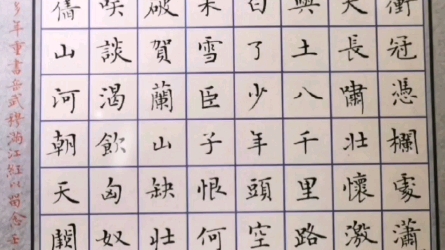 衝冠憑欄處瀟
天長嘯壯懷激
與土八千里路
白了少年頭空
未雪臣子恨何
破賀蘭山缺壯
談渴飲匈奴
山河朝天闕
年重書岳武穆滿江紅以留念